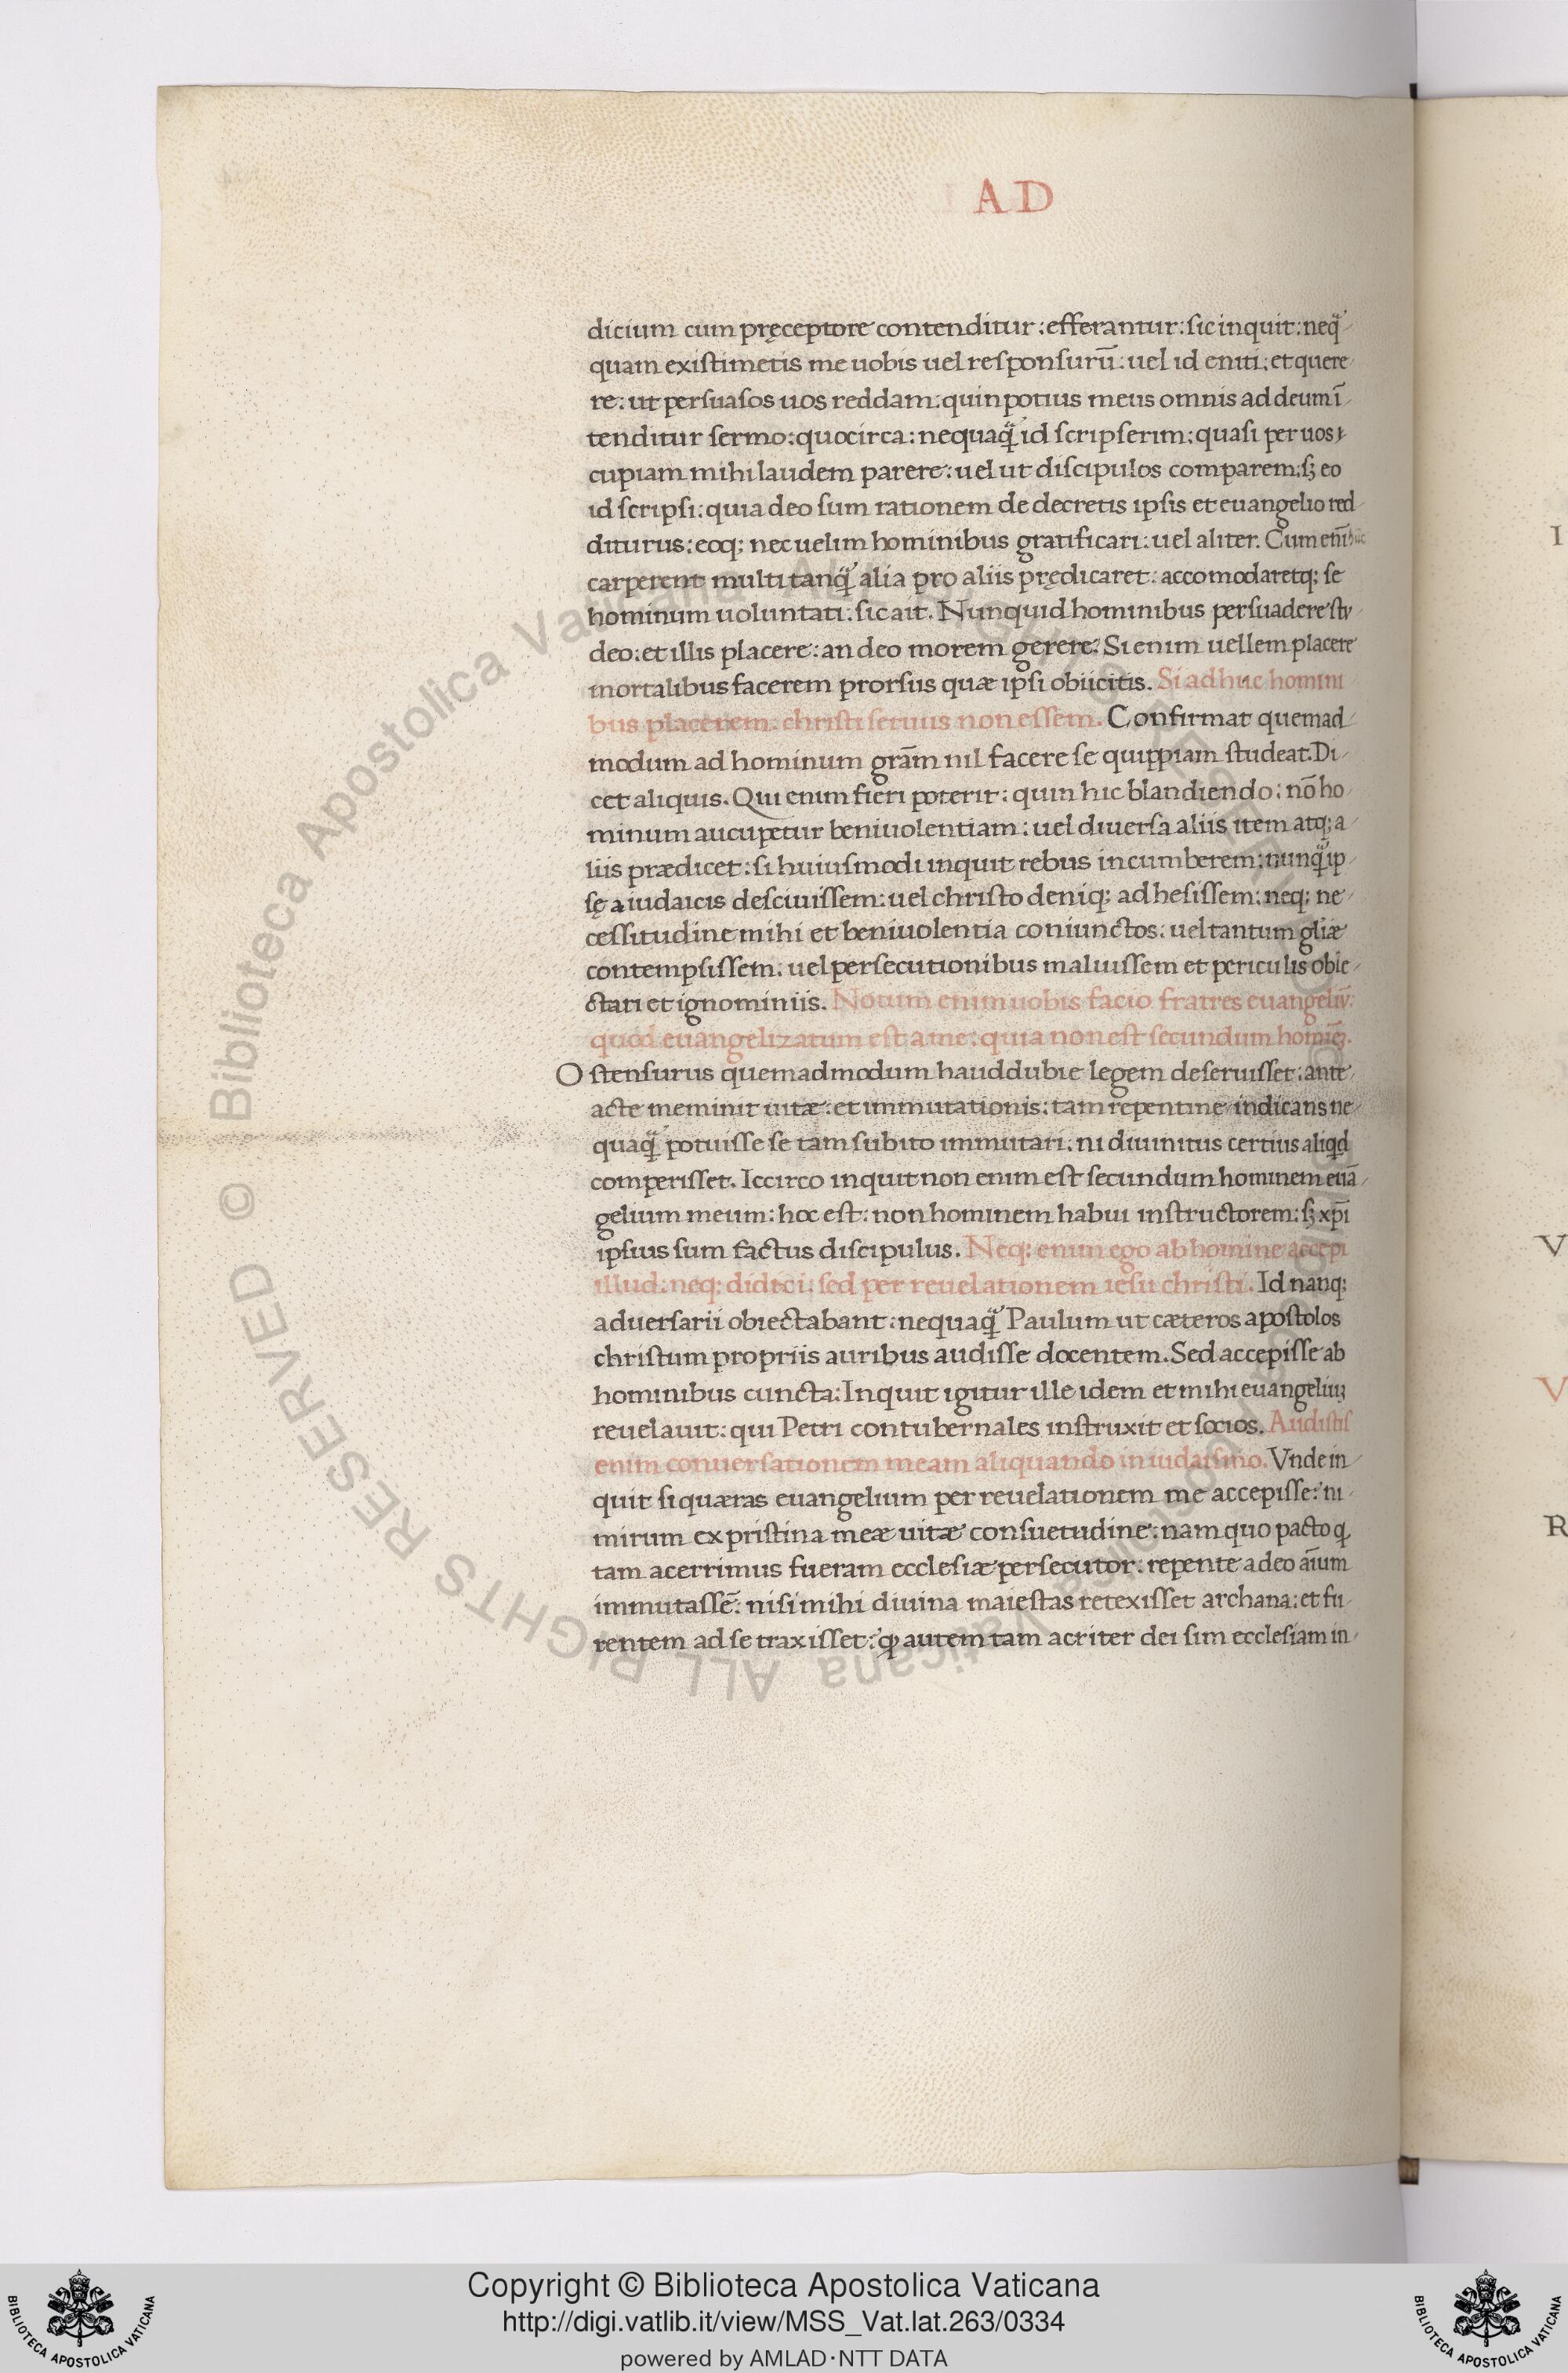 AD
dicium cum pręceptore contenditur: efferantur: sic inquit: neq̃
quam existimetis me uobis uel responsurū: uel id eniti: et quere
re: ut persuasos uos reddam: quin potius meus omnis ad deum ī
tenditur sermo: quocirca: nequaq̃ id scripserim: quasi per uos
cupiam mihi laudem parere: uel ut discipulos comparem: sꝫ eo
id scripsi: quia deo sum rationem de decretis ipsis et euangelio red
diturus: eoq; nec uelim hominibus gratificari: uel aliter. Cum enī
carperent multi tanq̃ alia pro aliis prędicaret: accomodaretq; se
hominum uoluntati: sic ait. Nunquid hominibus persuadere stu
deo: et illis placere: an deo morem gerere? Si enim uellem placere
mortalibus facerem prorsus quæ ipsi obiicitis. Si adhuc homini
bus placerem: christi seruus non essem. Confirmat quemad
modum ad hominum grām nil facere se quippiam studeat. Di
cet aliquis. Qui enim fieri poterit: quin hic blandiendo: nō ho
minum aucupetur beniuolentiam: uel diuersa aliis item atq; a
liis prædicet: si huiusmodi inquit rebus incumberem: nunq̃ ip
sę a iudaicis desciuissem: uel christo deniq; adhesissem: neq; ne
cessitudine mihi et beniuolentia coniunctos: uel tantum gliæ
contempsissem: uel persecutionibus maluissem et periculis obie
ctari et ignominiis. Notum enim uobis facio fratres euangeliū:
quod euangelizatum est a me: quia non est secundum hominē.
Ostensurus quemadmodum haud dubie legem deseruisset: ante
acte meminit uitæ: et immutationis: tam repentine indicans ne
quaq̃ potuisse se tam subito immutari: ni diuinitus certius aliqd
comperisset. Iccirco inquit non enim est secundum hominem euā
gelium meum: hoc est: non hominem habui instructorem: sꝫ xp̄i
ipsius sum factus discipulus. Neq; enim ego ab homine accepi
illud: neq; didici: sed per reuelationem iesu christi. Id nanq;
aduersarii obiectabant: nequaq̃ Paulum ut cæteros apostolos
christum propriis auribus audisse docentem. Sed accepisse ab
hominibus cuncta: Inquit igitur ille idem et mihi euangeliuꝫ
reuelauit: qui Petri contubernales instruxit et socios. Audistis
enim conuersationem meam aliquando in iudaismo. Vnde in
quit si quæras euangelium per reuelationem me accepisse: ni
mirum ex pristina meæ uitæ consuetudine: nam quo pacto q
tam acerrimus fueram ecclesiæ persecutor: repente adeo aīum
immutassē: nisi mihi diuina maiestas retexisset archana: et fu
rentem ad se traxisset: ꝙ autem tam acriter dei sim ecclesiam in
I
V
V
R
© Biblioteca Apostolica Vaticana ALL RIGHTS RESERVED © Biblioteca Apostolica Vaticana ALL RIGHTS RESERVED
Copyright © Biblioteca Apostolica Vaticana
http://digi.vatlib.it/view/MSS_Vat.lat.263/0334
powered by AMLAD·NTT DATA
BIBLIOTECA APOSTOLICA VATICANA
BIBLIOTECA APOSTOLICA VATICANA